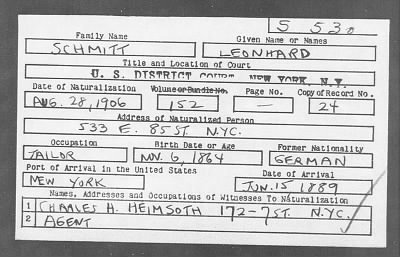 S 530
Family Name Given Name or Names
SCHMITT LEONHARD
Title and Location of Court
U. S. DISTRICT COURT, NEW YORK, N.Y.
Date of Naturalization Volume or Bundle No. Page No. Copy of Record No.
AUG. 28, 1906 152 — 24
Address of Naturalized Person
533 E. 85 ST. N.Y.C.
Occupation Birth Date or Age Former Nationality
TAILOR NOV. 6, 1864 GERMAN
Port of Arrival in the United States Date of Arrival
NEW YORK JUN. 15 1889
Names, Addresses and Occupations of Witnesses To Naturalization
1 CHARLES H. HEIMSOTH 172-7 ST. N.Y.C.
2 AGENT